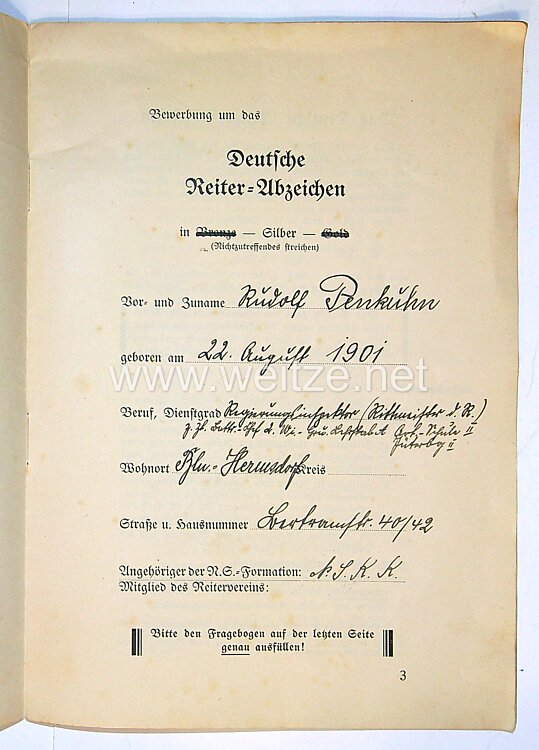 Bewerbung um das
Deutsche
Reiter-Abzeichen
in Bronze — Silber — Gold
(Nichtzutreffendes streichen)
Vor- und Zuname Rudolf Penkuhn
geboren am 22. August 1901
www.weitze.net
Beruf, Dienstgrad Regierungsinspektor (Rittmeister d. R.)
z. Zt. Battr. Chef Art.-Schule II
Jüterbog II
Wohnort Bln.-Hermsdorf Kreis
Straße u. Hausnummer Bertramstr. 40/42
Angehöriger der N.S.-Formation: N. S. K. K.
Mitglied des Reitervereins:
Bitte den Fragebogen auf der letzten Seite
genau ausfüllen!
3